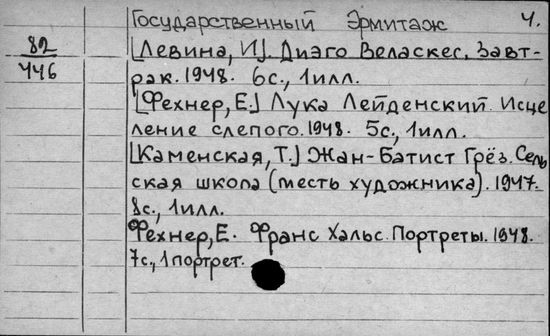 Государственный Эрмитаж 4.
82
446
[Левина, И]. Диаго Веласкес. Завт-
рак. 1948. 6с., 1илл.
[Фехнер, Е.] Лука Лейденский. Исце
ление слепого. 1948. 5с., 1илл.
[Каменская, Т.] Жан-Батист Грёз. Сель
ская школа (месть художника). 1947.
8с., 1илл.
Фехнер, Е. Франс Хальс. Портреты. 1948.
7с., 1портрет.